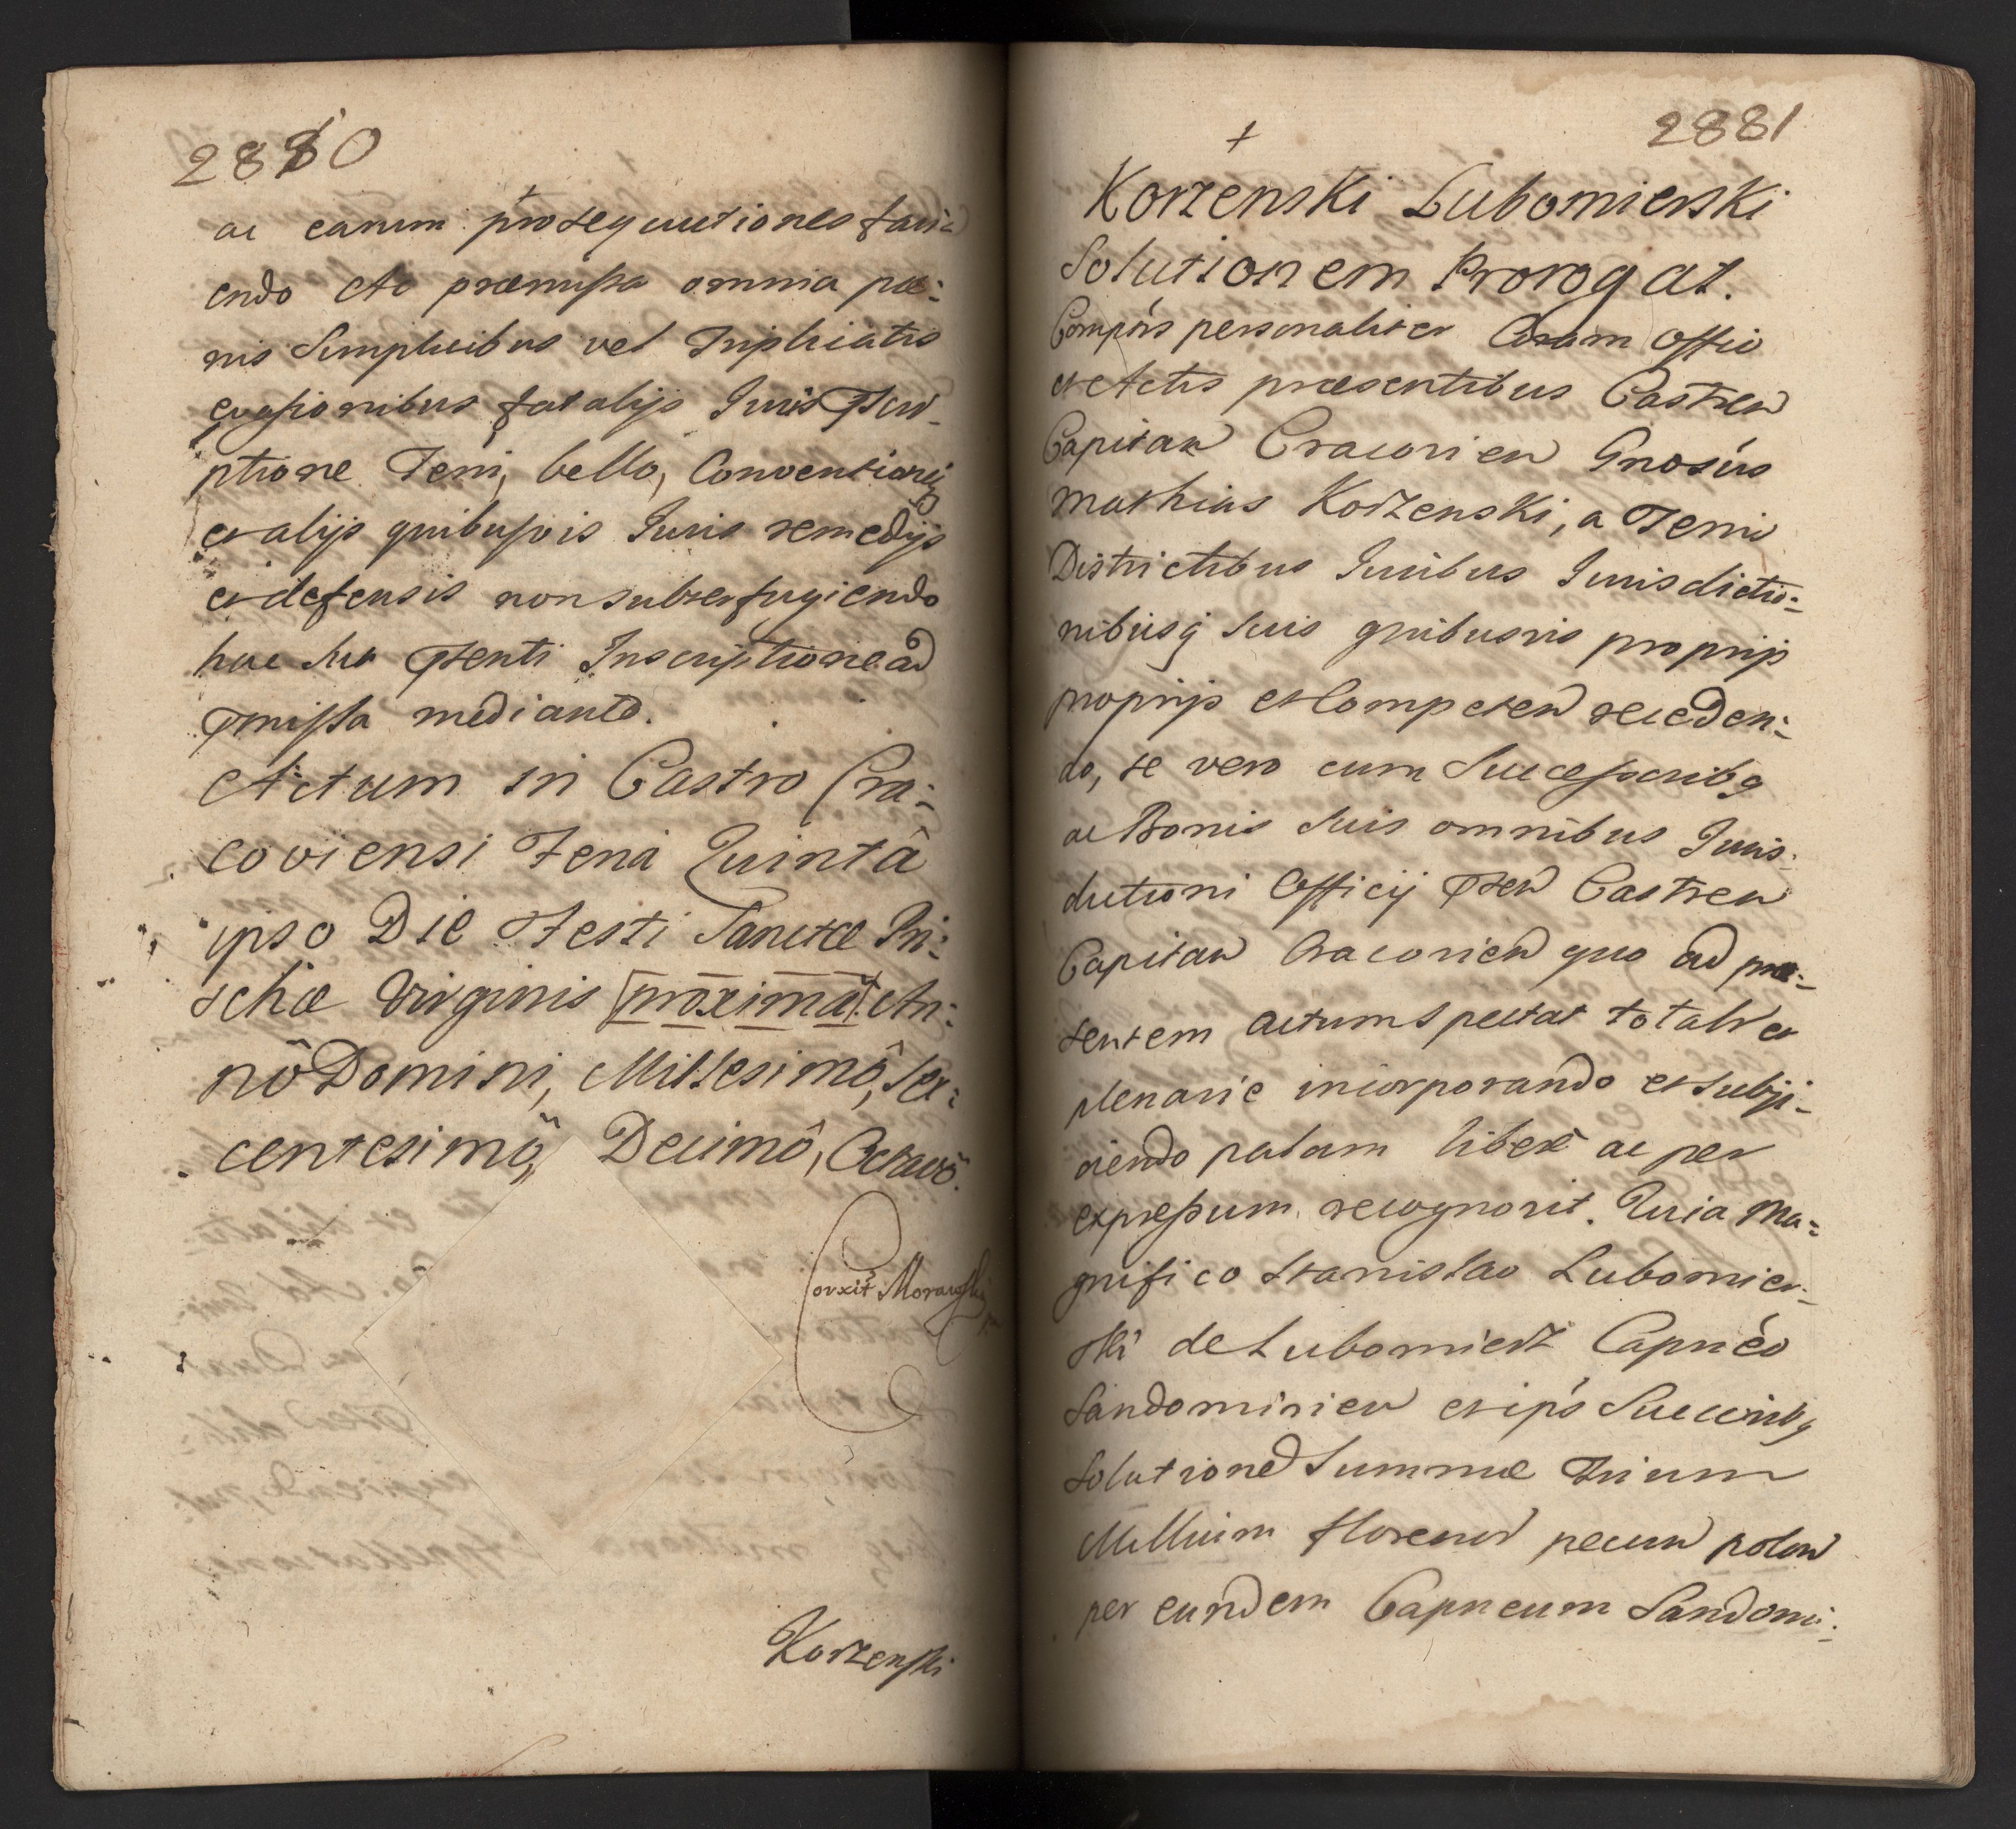 2880
ac earum prosequutiones faci=
endo Ac præmissa omnia pæ=
nis Simplicibus vel Triplicatis
evasionibus fatalijs Juris Pscri-
ptione Terri, bello, Conventionib9
et alijs quibusvis Juris remedijs
et defensis non subterfugiendo
hac sua Psenti Inscriptione ad
Pmissa mediante.
Actum in Castro Cra=
coviensi Feria Quintâ
ipso Die Festi Sanctæ Pri=
schæ Virginis proxima An=
nô Domini, Millesimô, Sex=
centesimô, Decimô, Octavô.
Corxit Morawski
Korzenski
2881
Korzenski Lubomierski
Solutionem Prorogat.
Comp̃ns personaliter Coram Offio
et Actis præsentibus Castren
Capitan Cracovien Gnosus
Mathias Korzenski, a Terris
Districtibus Juribus Jurisdictio=
nibusq suis quibusvis proprijs
proprijs et Competen receden=
do, se vero cum Successoribq
ac Bonis suis omnibus Juris=
dictioni Officij Psen Castren
Capitan Cracovien quo ad præ=
sentem actum spectat totaliter
plenarie incorporando et subji-
ciendo palam libere ac per
expressum recognovit. Quia Ma=
gnifico Stanislao Lubomier-
ski de Lubomierz Capneo
Sandomirien et ips Succrib9
Solutione Summæ Trium
Millium floreno pecun polon
per eundem Capneum Sandomi=